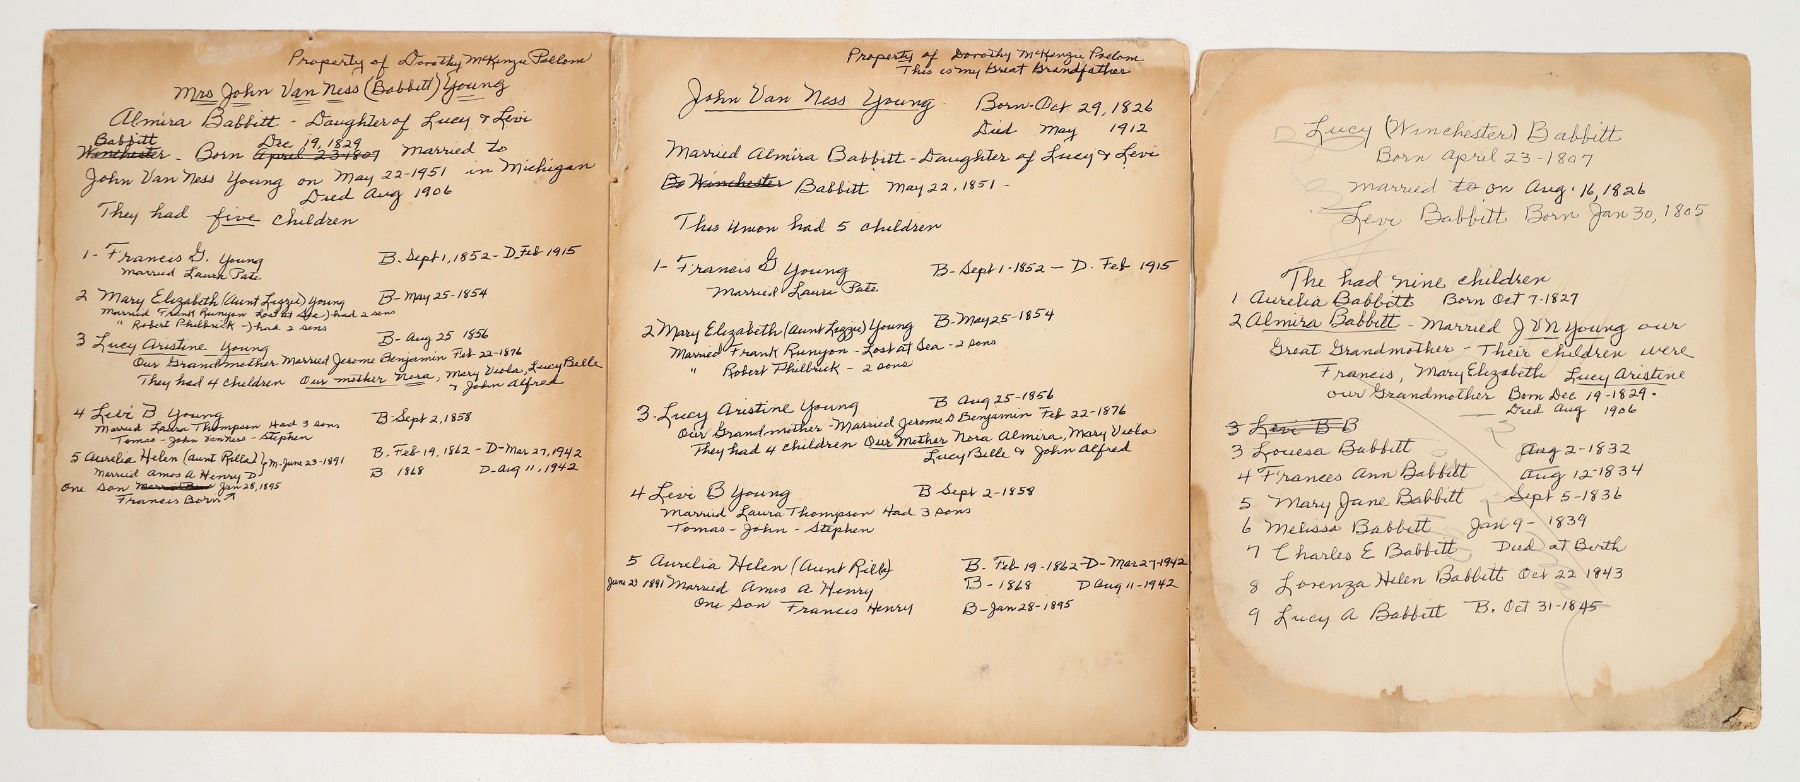 Property of Dorothy McKenzie Poelom
Mrs John Van Ness (Babbitt) Young
Almira Babbitt - Daughter of Lucy & Levi
Babbitt Dec 19, 1829
Winchester - Born April 23-1807 married to
John Van Ness Young on May 22-1951 in Michigan
Died Aug 1906
They had five children
1- Francis G. Young B. Sept 1, 1852 - D. Feb 1915
married Laura Pate
2 Mary Elizabeth (Aunt Lizzie) Young B- May 25-1854
Married Frank Runyon Lost at Sea) had 2 sons
" Robert Philbrick -) had 2 sons
3 Lucy Aristine Young B- Aug 25 1856
Our Grandmother Married Jerome Benjamin Feb 22-1876
They had 4 children Our mother Nora, Mary Viola, Lucy Belle
& John Alfred
4 Levi B Young B Sept 2, 1858
Married Laura Thompson Had 3 sons
Tomas - John VanNess - Stephen
5 Aurelia Helen (Aunt Rilla) M-June 23-1891 B. Feb 19, 1862 - D-Mar 27, 1942
Married Amos A Henry D B 1868 D-Aug 11, 1942
One Son Jan 28, 1895
Francis Born
Property of Dorothy McKenzie Poelom
This is my Great Grandfather
John Van Ness Young. Born-Oct 29, 1826
Died May 1912
Married Almira Babbitt - Daughter of Lucy & Levi
Bo Winchester Babbitt May 22, 1851 -
This union had 5 children
1- Francis G Young B- Sept 1-1852 - D. Feb 1915
Married Laura Pate
2 Mary Elizabeth (Aunt Lizzie) Young B- May 25-1854
Married Frank Runyon - Lost at Sea - 2 sons
" Robert Philbrick - 2 sons
3. Lucy Aristine Young B Aug 25-1856
Our Grandmother - Married Jerome D Benjamin Feb 22-1876
They had 4 children Our Mother Nora Almira, Mary Viola
Lucy Belle & John Alfred
4 Levi B Young B Sept 2-1858
Married Laura Thompson Had 3 sons
Tomas - John - Stephen
5 Aurelia Helen (Aunt Rilla) B. Feb 19-1862 - D- Mar 27-1942
June 23 1891 Married Amos A Henry B- 1868 D Aug 11-1942
One Son Francis Henry B-Jan 28-1895
Lucy (Winchester) Babbitt
Born April 23-1807
married to on Aug. 16, 1826
Levi Babbitt Born Jan 30, 1805
The had nine children
1 Aurelia Babbitt Born Oct 7-1827
2 Almira Babbitt - Married J V N Young our
Great Grandmother - Their children were
Francis, Mary Elizabeth Lucy Aristine
our Grandmother Born Dec 19-1829.
Died Aug 1906
3 Levi B B
3 Louesa Babbitt Aug 2-1832
4 Frances Ann Babbitt Aug 12-1834
5 Mary Jane Babbitt Sept 5-1836
6 Melissa Babbitt Jan 9 - 1839
7 Charles E Babbitt Died at Birth
8 Lorenza Helen Babbitt Oct 22 1843
9 Lucy A Babbitt B. Oct 31-1845